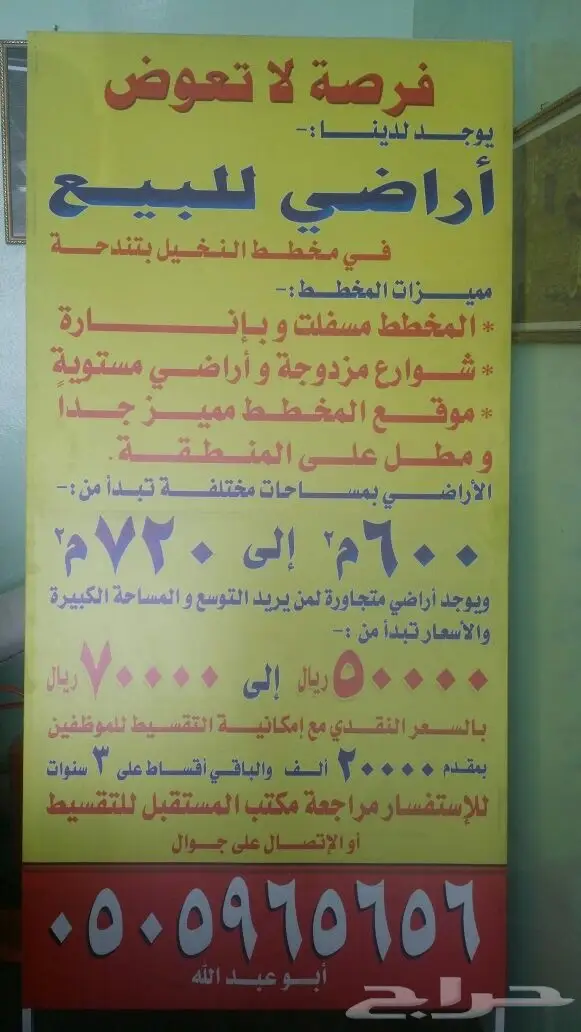 فرصة لا تعوض
يوجد لدينا :-
أراضي للبيع
في مخطط النخيل بتندحة
مميزات المخطط :-
* المخطط مسفلت و بإنارة
* شوارع مزدوجة و أراضي مستوية
* موقع المخطط مميز جداً
و مطل على المنطقة .
الأراضي بمساحات مختلفة تبدأ من :-
٦٠٠م٢ إلى ٧٢٠م٢
ويوجد أراضي متجاورة لمن يريد التوسع و المساحة الكبيرة
والأسعار تبدأ من :-
٥٠٠٠٠ ريال إلى ٧٠٠٠٠ ريال
بالسعر النقدي مع إمكانية التقسيط للموظفين
بمقدم ٢٠٠٠٠ ألف والباقي أقساط على ٣ سنوات
للإستفسار مراجعة مكتب المستقبل للتقسيط
أو الإتصال على جوال
٠٥٠٥٩٦٥٦٥٦
أبو عبد الله
حراج